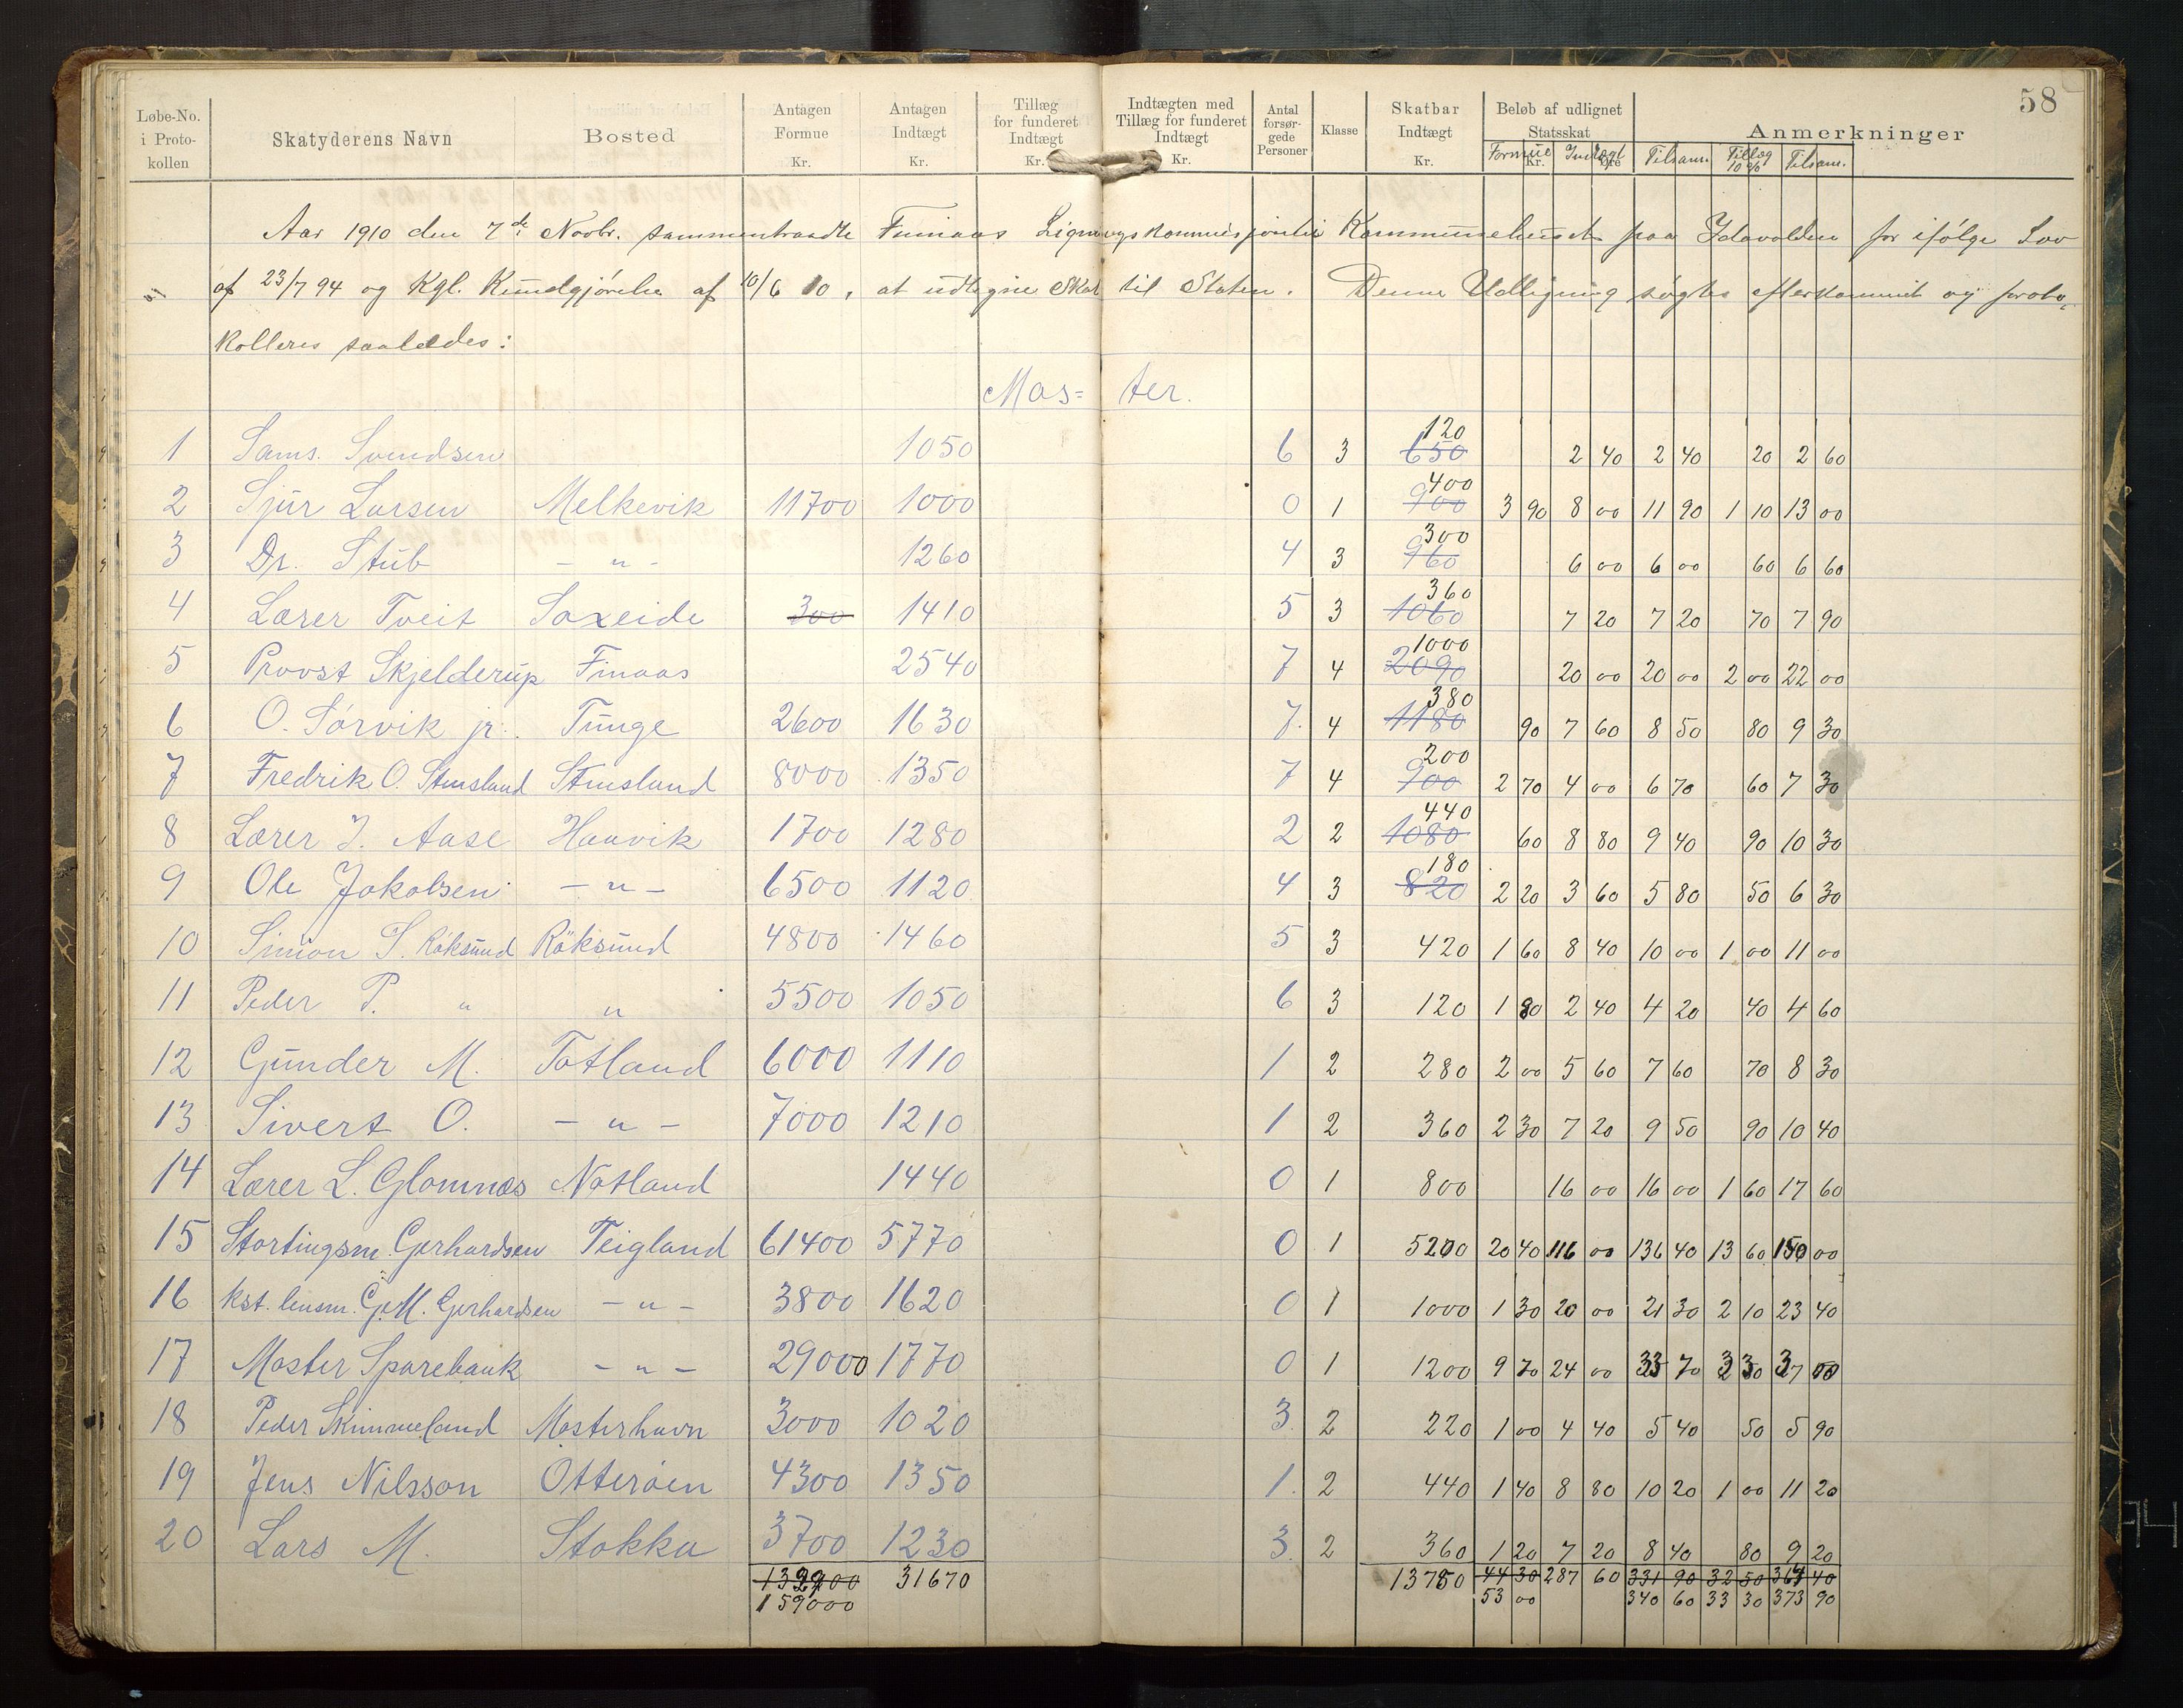 58
Løbe-No. i Protokollen | Skatyderens Navn | Bosted | Antagen Formue Kr. | Antagen Indtægt Kr. | Tillæg for funderet Indtægt Kr. | Indtægten med Tillæg for funderet Indtægt Kr. | Antal forsørgede Personer | Klasse | Skatbar Indtægt Kr. | Beløb af udlignet Statsskat Kr. Øre | Anmerkninger
Formue | Indtægt | Tilsam. | Tillæg 10% | Tilsam.
Aar 1910 den 7de Novbr. sammentraadte Finnaas Ligningskommission i Kommunehuset paa Idavolden for ifølge Lov
af 23/7 94 og Kgl. Kundgjørelse af 10/6 10, at udligne Skat til Staten. Denne Udligning søgtes efterkommet og proto-
kolleres saaledes:
Mos= ter.
1 Sams. Svendsen 1050 6 3 650 120 2 40 2 40 20 2 60
2 Sjur Larsen Melkevik 11700 1000 0 1 900 400 3 90 8 00 11 90 1 10 13 00
3 Dr. Stub - " - 1260 4 3 960 300 6 00 6 00 60 6 60
4 Lærer Tveit Saxeide 300 1410 5 3 1060 360 7 20 7 20 70 7 90
5 Provst Skjelderup Finaas 2540 7 4 2090 1000 20 00 20 00 2 00 22 00
6 O. Sørvik jr. Tunge 2600 1630 7. 4 1180 380 90 7 60 8 50 80 9 30
7 Fredrik O. Stensland Stensland 8000 1350 7 4 900 200 2 70 4 00 6 70 60 7 30
8 Lærer J. Aase Haavik 1700 1280 2 2 1080 440 60 8 80 9 40 90 10 30
9 Ole Jakobsen - " - 6500 1120 4 3 820 180 2 20 3 60 5 80 50 6 30
10 Simon S. Røksund Røksund 4800 1460 5 3 420 1 60 8 40 10 00 1 00 11 00
11 Peder P. " " 5500 1050 6 3 120 1 80 2 40 4 20 40 4 60
12 Gunder M. Totland 6000 1110 1 2 280 2 00 5 60 7 60 70 8 30
13 Sivert O. - " - 7000 1210 1 2 360 2 30 7 20 9 50 90 10 40
14 Lærer L. Glomnæs Notland 1440 0 1 800 16 00 16 00 1 60 17 60
15 Stortingsm. Gerhardsen Teigland 61400 5770 0 1 5200 20 40 116 00 136 40 13 60 150 00
16 kst. lensm. G.M. Gerhardsen - " - 3800 1620 0 1 1000 1 30 20 00 21 30 2 10 23 40
17 Moster Sparebank - " - 29000 1770 0 1 1200 9 70 24 00 33 70 3 30 37 00
18 Peder Skimmeland Mosterhavn 3000 1020 3 2 220 1 00 4 40 5 40 50 5 90
19 Jens Nilsson Otterøen 4300 1350 1. 2 440 1 40 8 80 10 20 1 00 11 20
20 Lars M. Stokka 3700 1230 3. 2 360 1 20 7 20 8 40 80 9 20
31670 13780 44 30 287 60 331 90 32 50 364 40
159000 53 00 340 60 33 30 373 90